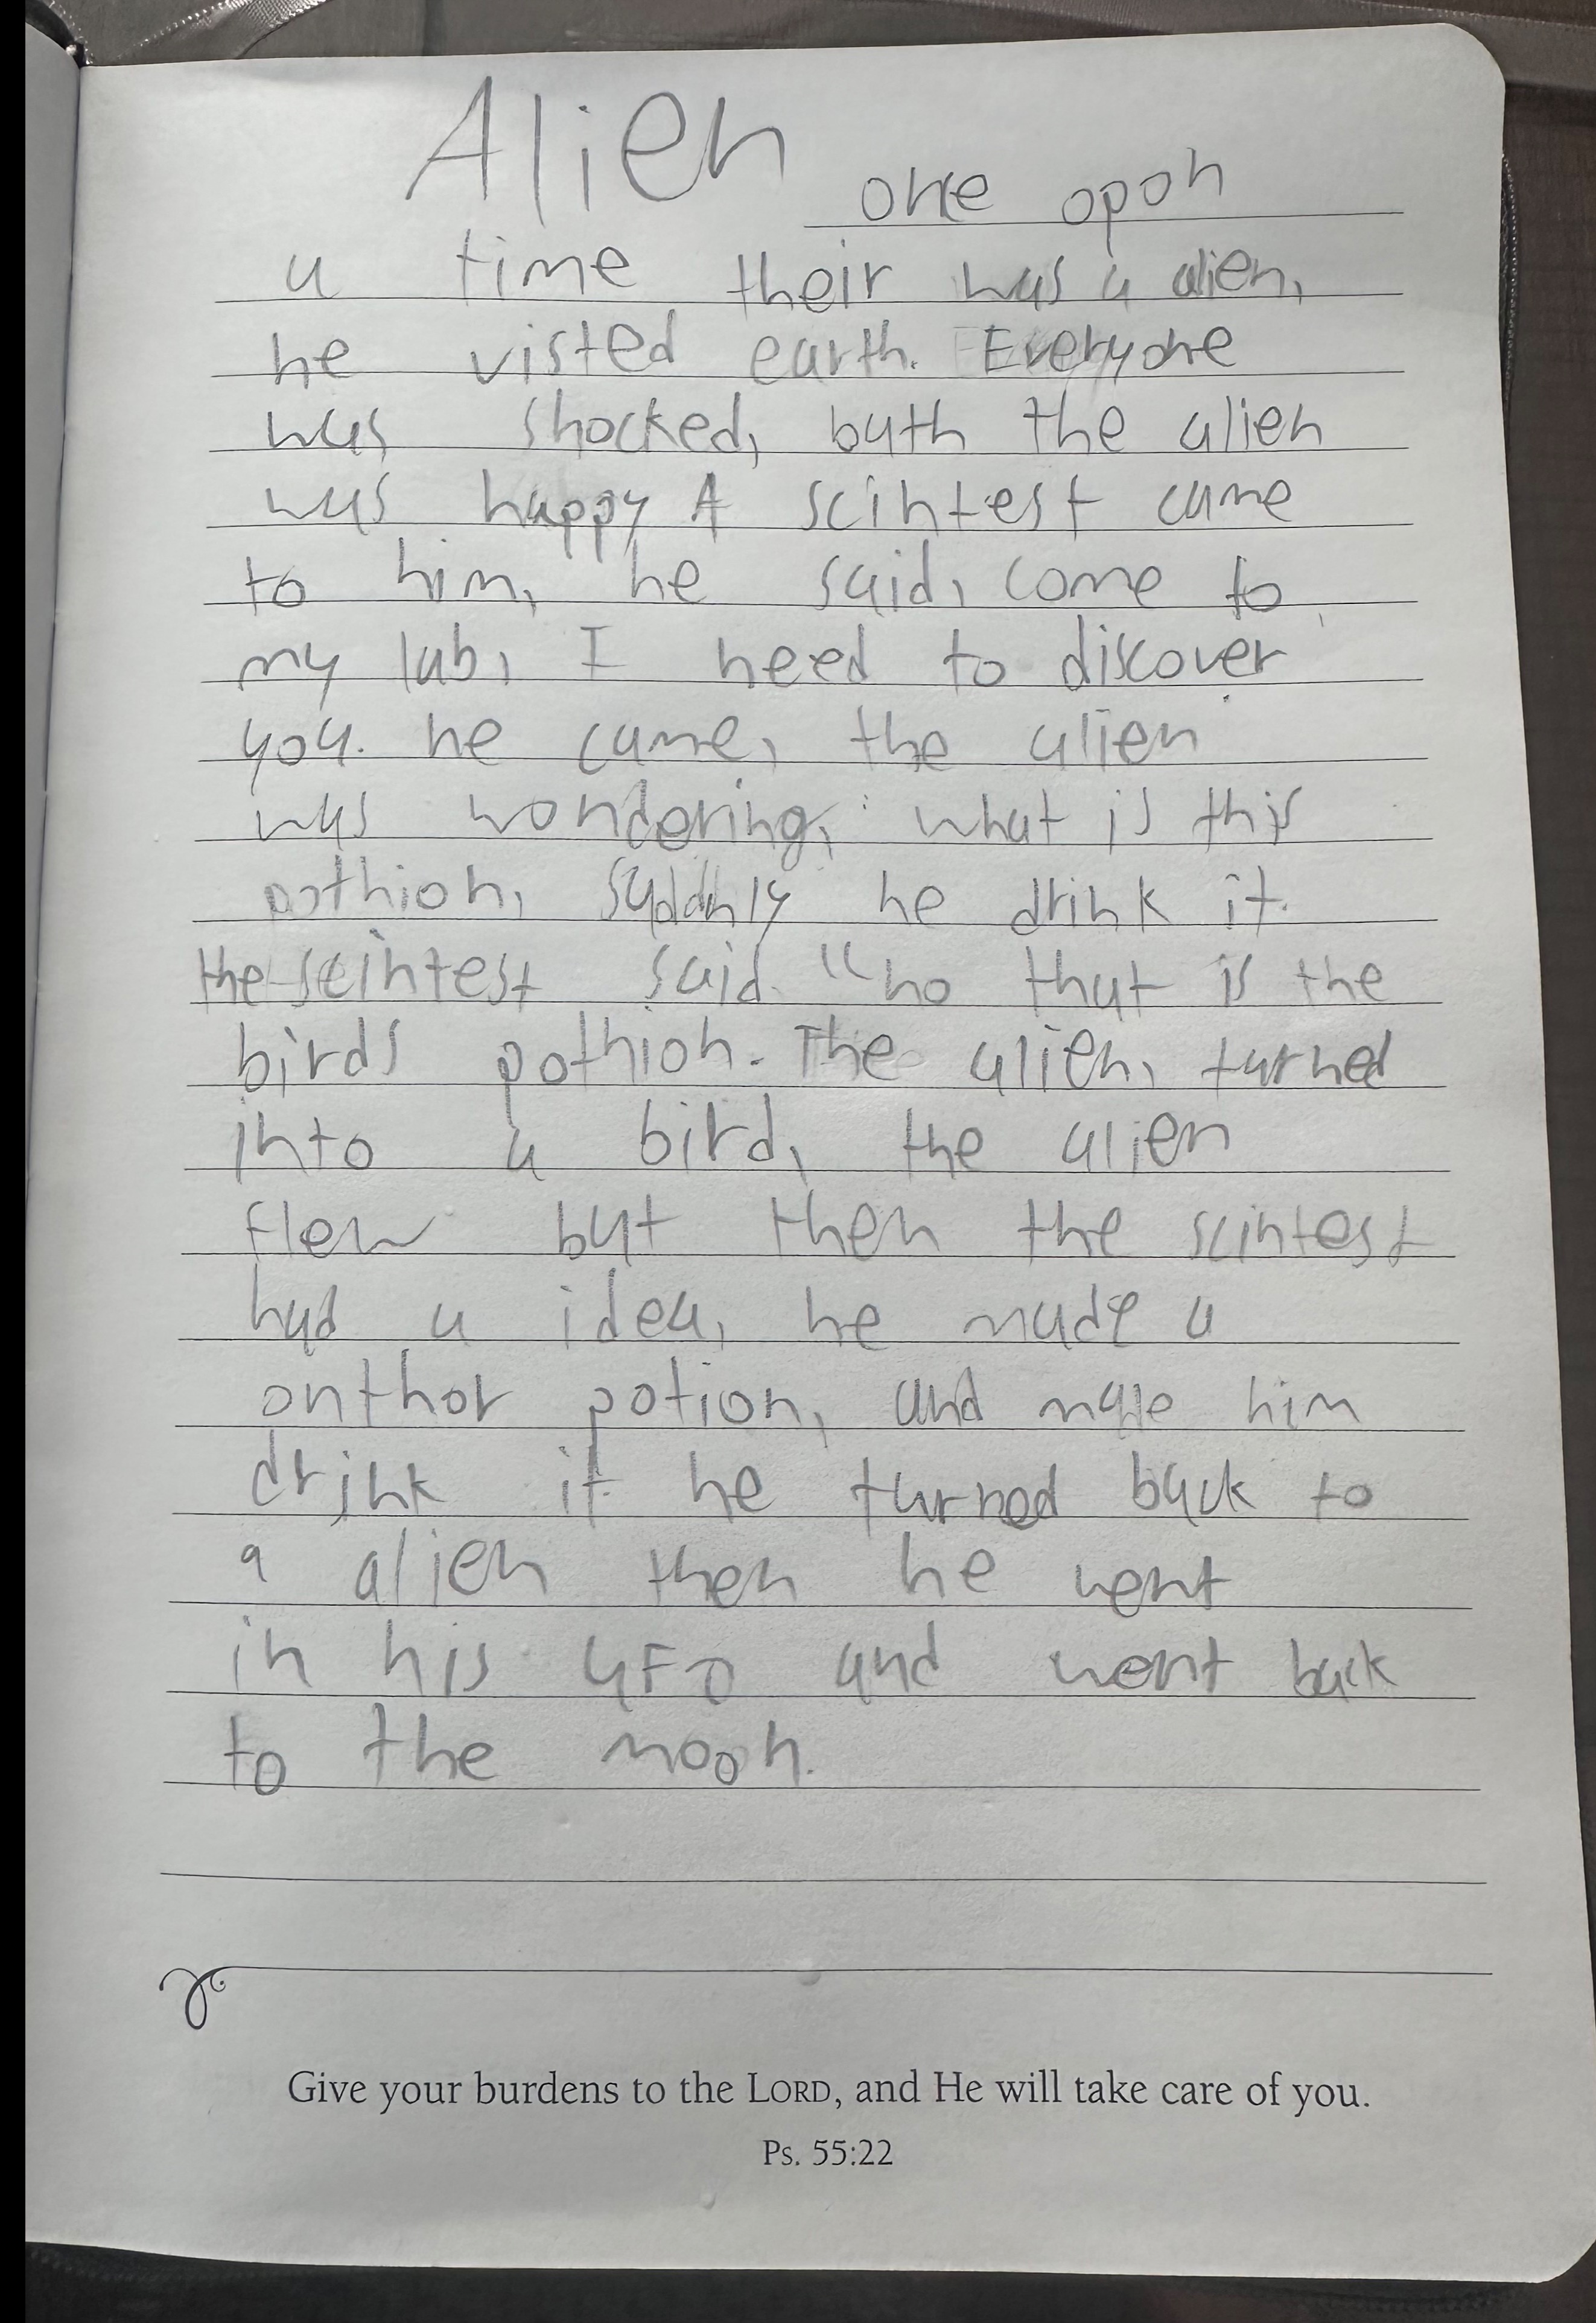 Alien
one opon
a time their was a alien,
he visted earth. Everyone
was shocked, buth the alien
was happy A scintest came
to him, he said, come to
my lab, I need to discover
you. he came, the alien
was wondering, what is this
pothion, suddnly he drink it.
the scintest said "no that is the
birds pothion. The alien, turned
into a bird, the alien
flew but then the scintest
had a idea, he made a
onthor potion, and made him
drink it he turned back to
a alien then he went
in his UFO and went back
to the moon.
Give your burdens to the LORD, and He will take care of you.
Ps. 55:22